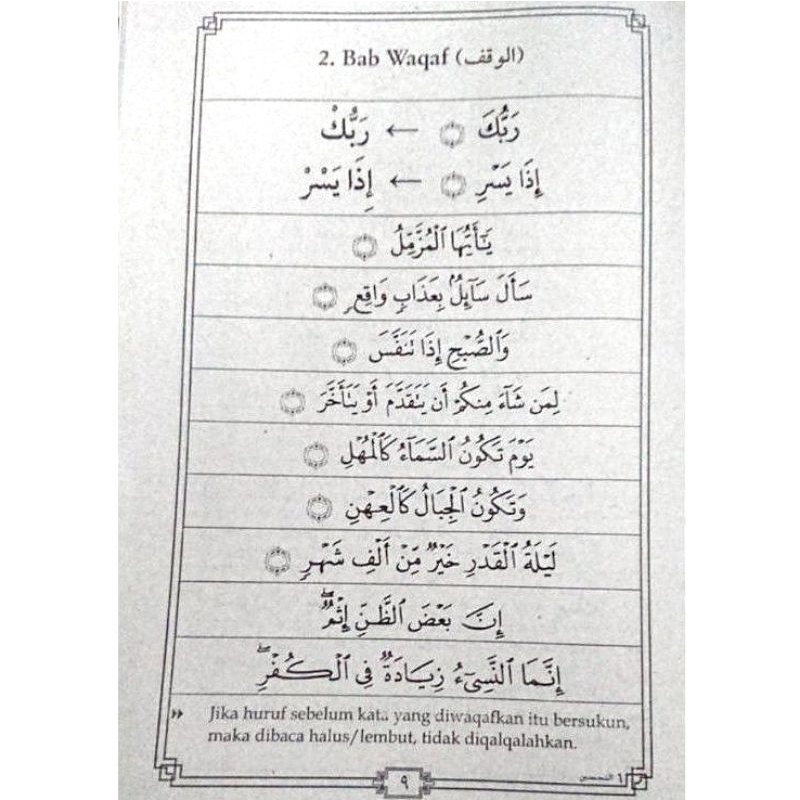 2. Bab Waqaf (الوقف)
رَبُّكَ ۝ ← رَبُّكْ
إِذَا يَسْرِ ۝ ← إِذَا يَسْرْ
يَٰٓأَيُّهَا ٱلْمُزَّمِّلُ ۝
سَأَلَ سَآئِلٌۢ بِعَذَابٍ وَاقِعٍ ۝
وَٱلصُّبْحِ إِذَا تَنَفَّسَ ۝
لِمَن شَآءَ مِنكُمْ أَن يَتَقَدَّمَ أَوْ يَتَأَخَّرَ ۝
يَوْمَ تَكُونُ ٱلسَّمَآءُ كَٱلْمُهْلِ ۝
وَتَكُونُ ٱلْجِبَالُ كَٱلْعِهْنِ ۝
لَيْلَةُ ٱلْقَدْرِ خَيْرٌ مِّنْ أَلْفِ شَهْرٍ ۝
إِنَّ بَعْضَ ٱلظَّنِّ إِثْمٌ ۖ
إِنَّمَا ٱلنَّسِىٓءُ زِيَادَةٌ فِى ٱلْكُفْرِ ۖ
Jika huruf sebelum kata yang diwaqafkan itu bersukun,
maka dibaca halus/lembut, tidak diqalqalahkan.
٩